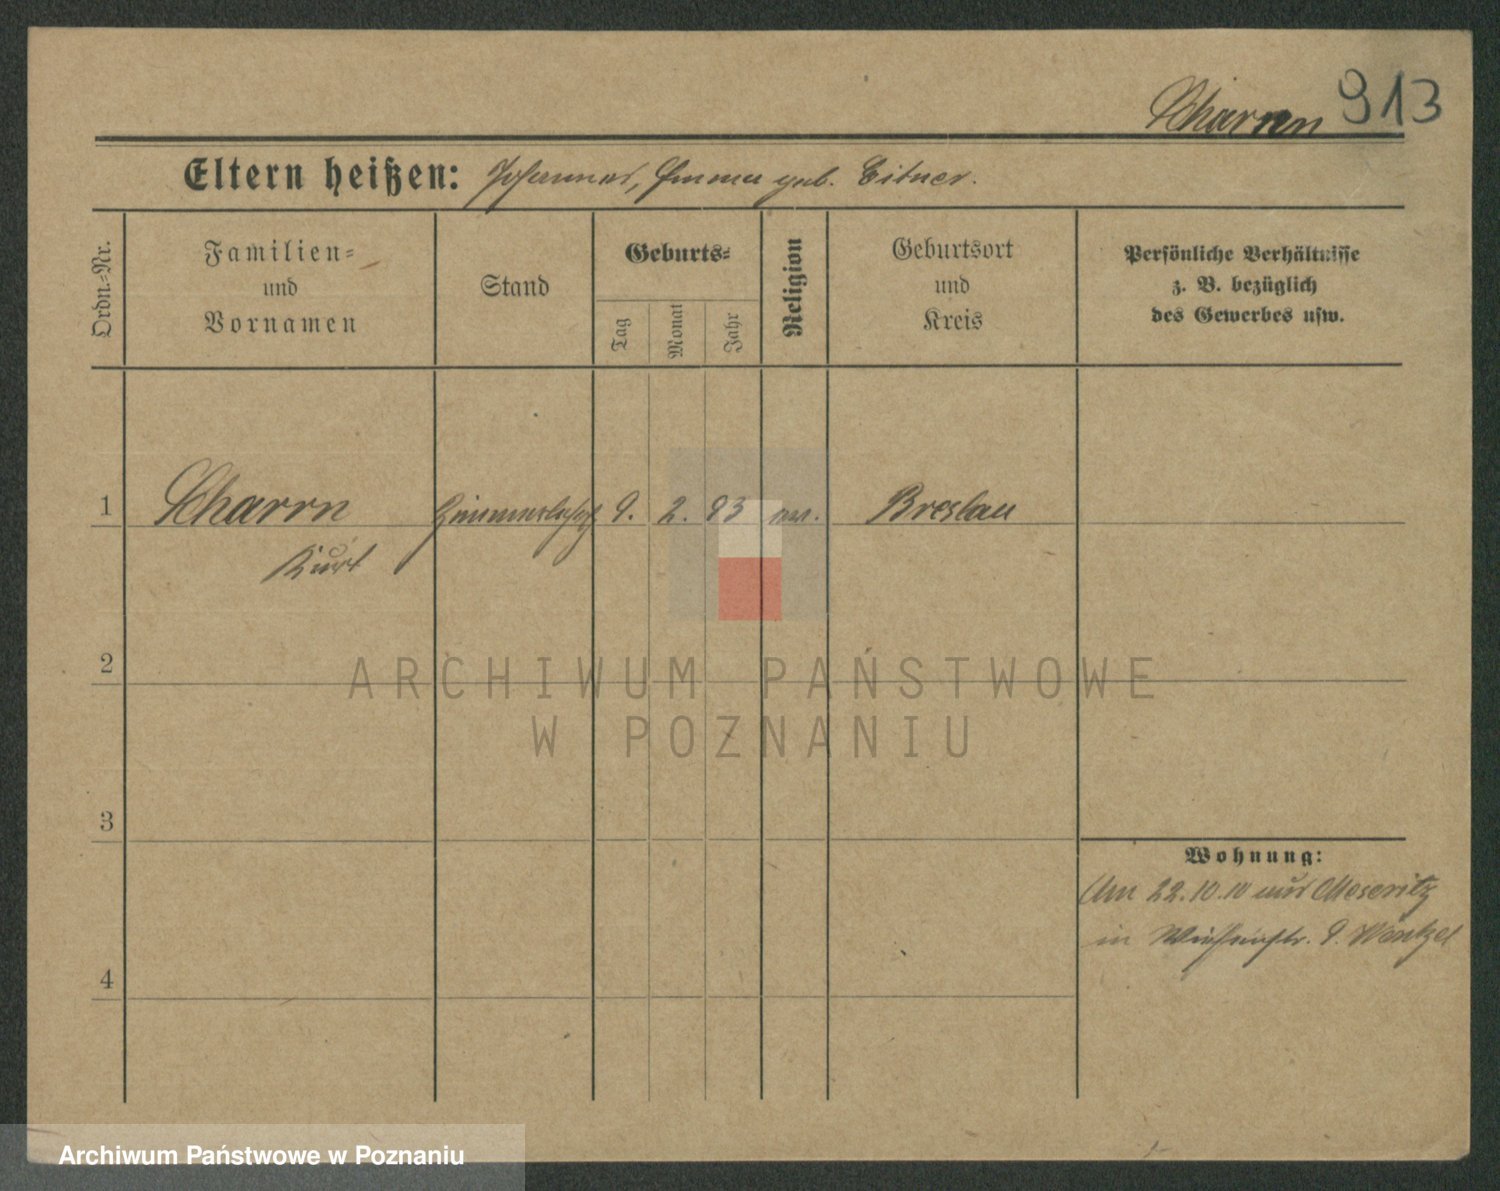 Scharrn 913
Eltern heißen: Johannes, Emma geb. Eitner.
Ordn.-Nr.
Familien-
und
Vornamen
Stand
Geburts-
Tag
Monat
Jahr
Religion
Geburtsort
und
Kreis
Persönliche Verhältnisse
z. B. bezüglich
des Gewerbes usw.
1 Scharrn 9. 2. 93 ev. Breslau
Kurt
ARCHIWUM PAŃSTWOWE
W POZNANIU
2
3
4
Wohnung:
Am 22.10.10 aus Meseritz
in Wiesenstr. 9. Wentzel
Archiwum Państwowe w Poznaniu